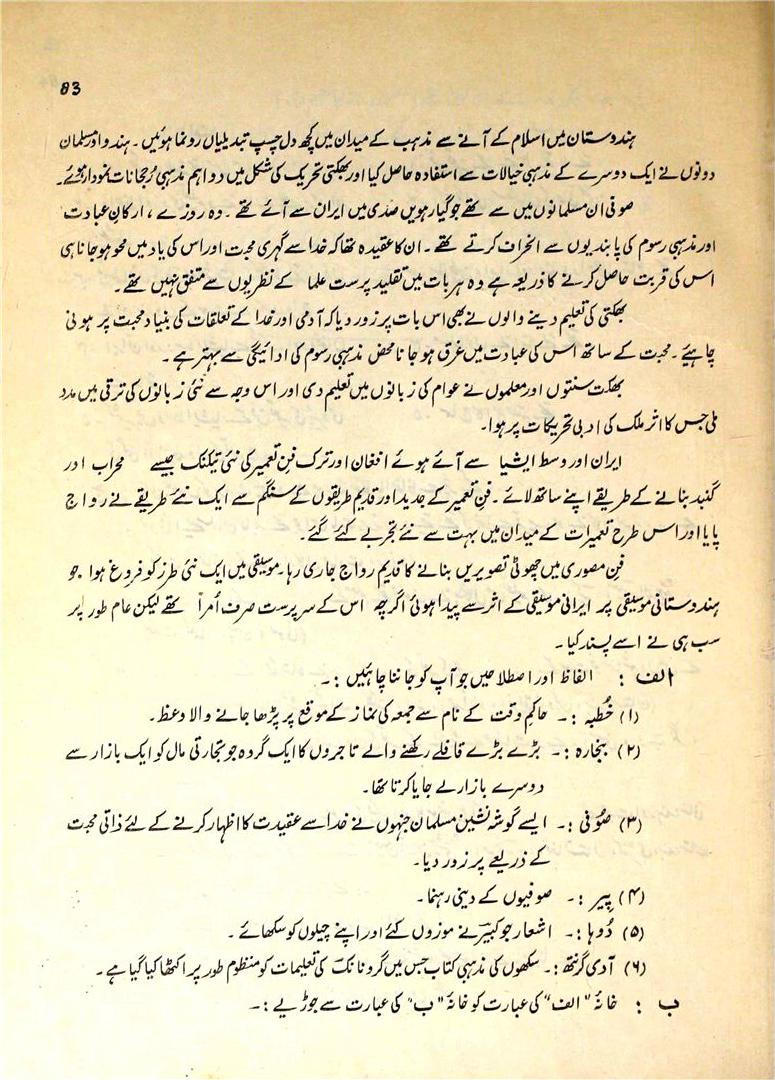 83
ہندوستان میں اسلام کے آنے سے مذہب کے میدان میں کچھ دل چسپ تبدیلیاں رونما ہوئیں۔ ہندو اور مسلمان
دونوں نے ایک دوسرے کے مذہبی خیالات سے استفادہ حاصل کیا اور بھکتی تحریک کی شکل میں دو اہم مذہبی رُجحانات نمودار ہوئے۔
صوفی ان مسلمانوں میں سے تھے جو گیارہویں صدی میں ایران سے آئے تھے۔ وہ روزے، ارکانِ عبادت
اور مذہبی رسوم کی پابندیوں سے انحراف کرتے تھے۔ ان کا عقیدہ تھا کہ خدا سے گہری محبت اور اس کی یاد میں محو ہو جانا ہی
اس کی قربت حاصل کرنے کا ذریعہ ہے وہ ہر بات میں تقلید پرست علما کے نظریوں سے متفق نہیں تھے۔
بھکتی کی تعلیم دینے والوں نے بھی اس بات پر زور دیا کہ آدمی اور خدا کے تعلقات کی بنیاد محبت پر ہونی
چاہیئے۔ محبت کے ساتھ اس کی عبادت میں غرق ہو جانا محض مذہبی رسوم کی ادائیگی سے بہتر ہے۔
بھکت سنتوں اور معلموں نے عوام کی زبانوں میں تعلیم دی اور اس وجہ سے نئی زبانوں کی ترقی میں مدد
ملی جس کا اثر ملک کی ادبی تحریکات پر ہوا۔
ایران اور وسط ایشیا سے آئے ہوئے افغان اور ترک فنِ تعمیر کی نئی تیکنک جیسے محراب اور
گنبد بنانے کے طریقے اپنے ساتھ لائے۔ فنِ تعمیر کے جدید اور قدیم طریقوں کے سنگم سے ایک نئے طریقے نے رواج
پایا اور اس طرح تعمیرات کے میدان میں بہت سے نئے تجربے کئے گئے۔
فنِ مصوری میں چھوٹی تصویریں بنانے کا قدیم رواج جاری رہا۔ موسیقی میں ایک نئی طرز کو فروغ ہوا جو
ہندوستانی موسیقی پر ایرانی موسیقی کے اثر سے پیدا ہوئی اگرچہ اس کے سرپرست صرف اُمرأ تھے لیکن عام طور پر
سب ہی نے اسے پسند کیا۔
الف : الفاظ اور اصطلاحیں جو آپ کو جاننا چاہئیں :۔
(۱) خُطبہ :۔ حاکمِ وقت کے نام سے جمعہ کی نماز کے موقع پر پڑھا جانے والا وعظ۔
(۲) بنجارہ :۔ بڑے بڑے قافلے رکھنے والے تاجروں کا ایک گروہ جو تجارتی مال کو ایک بازار سے
دوسرے بازار لے جایا کرتا تھا۔
(۳) صُوفی :۔ ایسے گوشہ نشین مسلمان جنہوں نے خدا سے عقیدت کا اظہار کرنے کے لئے ذاتی محبت
کے ذریعے پر زور دیا۔
(۴) پیر :۔ صوفیوں کے دینی رہنما۔
(۵) دُوہا :۔ اشعار جو کبیر نے موزوں کئے اور اپنے چیلوں کو سکھائے۔
(۶) آدی گرنتھ :۔ سکھوں کی مذہبی کتاب جس میں گرو نانک کی تعلیمات کو منظوم طور پر اکٹھا کیا گیا ہے۔
ب : خانۂ "الف" کی عبارت کو خانۂ "ب" کی عبارت سے جوڑیے :۔